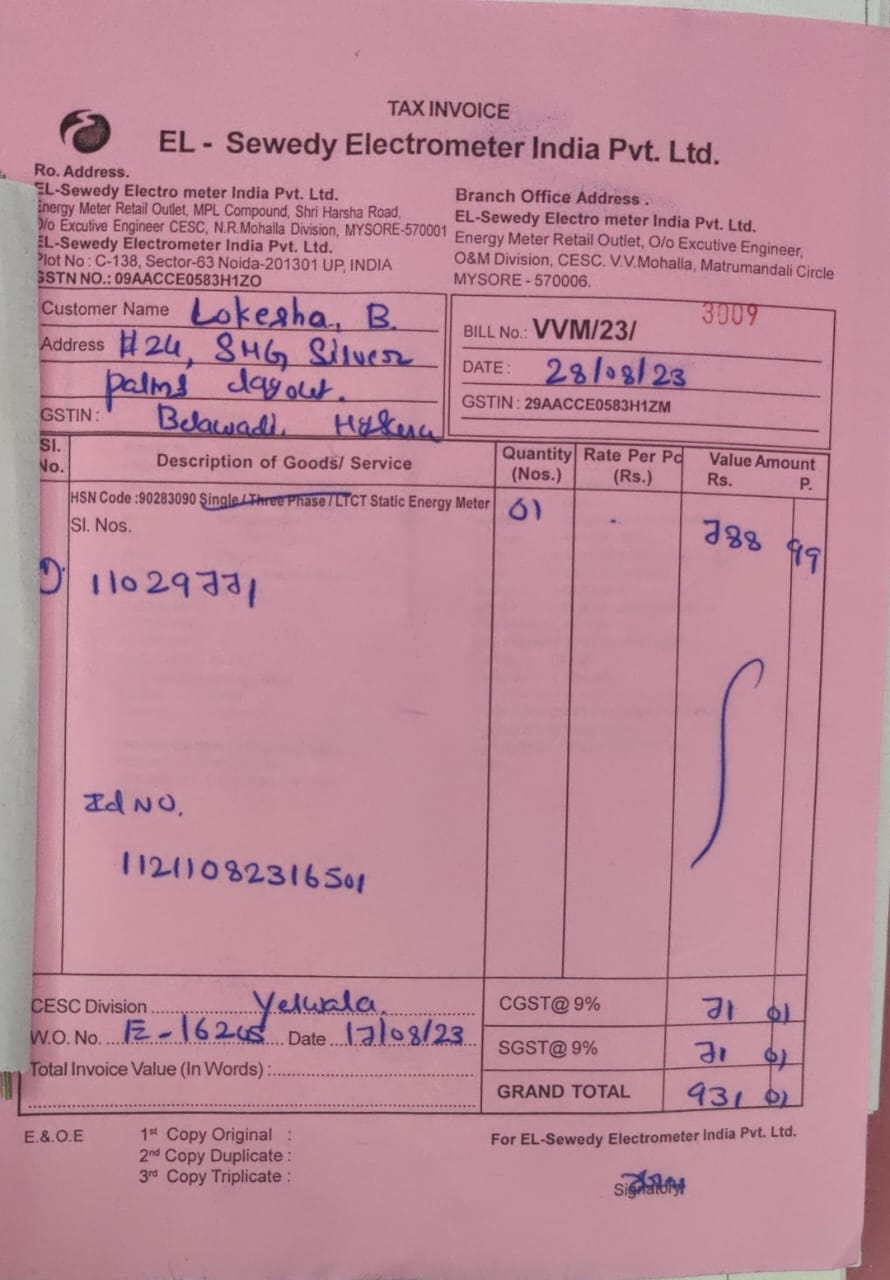 TAX INVOICE
EL - Sewedy Electrometer India Pvt. Ltd.
Ro. Address.
EL-Sewedy Electro meter India Pvt. Ltd.
Energy Meter Retail Outlet, MPL Compound, Shri Harsha Road,
O/o Excutive Engineer CESC, N.R.Mohalla Division, MYSORE-570001
EL-Sewedy Electrometer India Pvt. Ltd.
Plot No : C-138, Sector-63 Noida-201301 UP, INDIA
GSTN NO.: 09AACCE0583H1ZO
Branch Office Address .
EL-Sewedy Electro meter India Pvt. Ltd.
Energy Meter Retail Outlet, O/o Excutive Engineer,
O&M Division, CESC. V.V.Mohalla, Matrumandali Circle
MYSORE - 570006.
Customer Name Lokesha, B.
Address #24, SHG Silver
palms layout.
GSTIN : Belawadi,
BILL No.: VVM/23/ 3009
DATE : 28/08/23
GSTIN : 29AACCE0583H1ZM
Sl. No. Description of Goods/ Service Quantity (Nos.) Rate Per Pc (Rs.) Value Amount Rs. P.
HSN Code :90283090 Single / Three Phase / LTCT Static Energy Meter 01 788 99
Sl. Nos.
1) 11029771
Id NO.
11211082316501
CESC Division Yelwala.
W.O. No. Date 17/08/23
Total Invoice Value (In Words) :
CGST@ 9% 71 01
SGST@ 9% 71 01
GRAND TOTAL 931 01
E.&.O.E
1st Copy Original :
2nd Copy Duplicate :
3rd Copy Triplicate :
For EL-Sewedy Electrometer India Pvt. Ltd.
Signatory